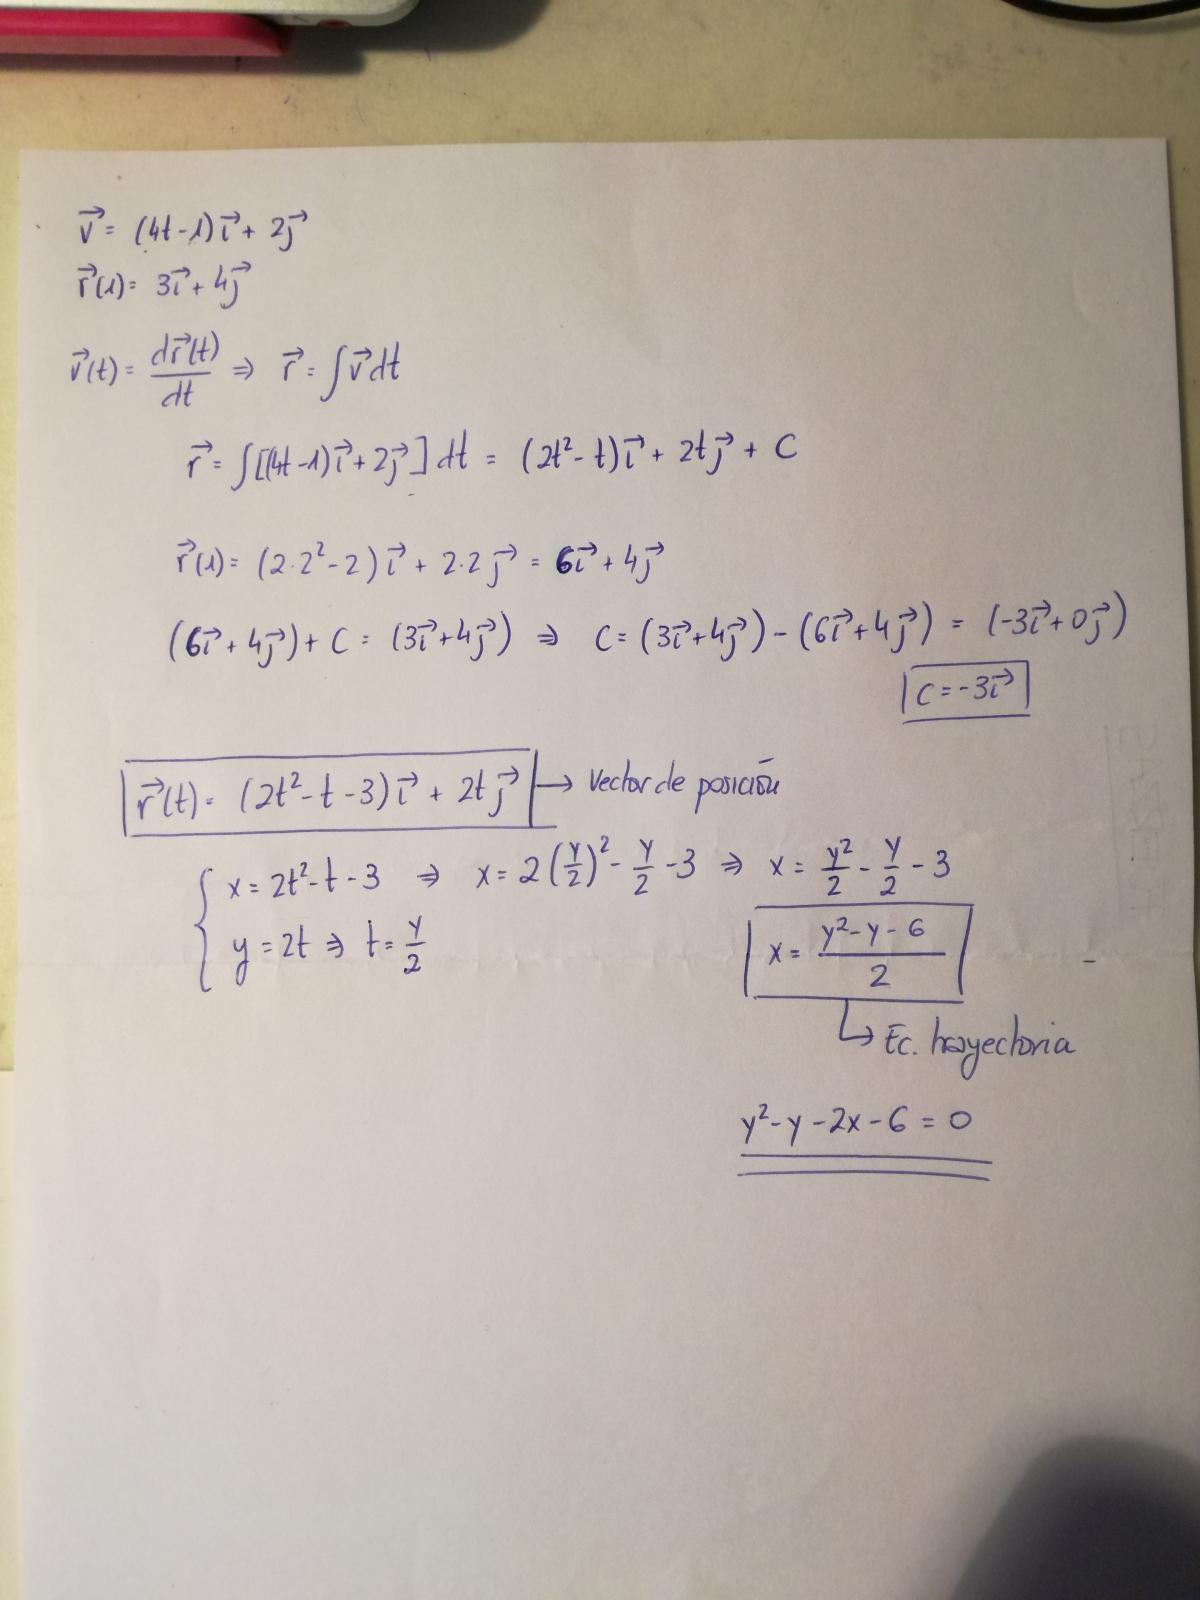 v⃗ = (4t-1)i⃗ + 2j⃗
r⃗(1) = 3i⃗ + 4j⃗
v⃗(t) = dr⃗(t)/dt ⇒ r⃗ = ∫v⃗dt
r⃗ = ∫[(4t-1)i⃗+2j⃗]dt = (2t²-t)i⃗ + 2tj⃗ + C
r⃗(1) = (2·2²-2)i⃗ + 2·2j⃗ = 6i⃗ + 4j⃗
(6i⃗ + 4j⃗) + C = (3i⃗+4j⃗) ⇒ C = (3i⃗+4j⃗) - (6i⃗+4j⃗) = (-3i⃗+0j⃗)
C = -3i⃗
r⃗(t) = (2t²-t-3)i⃗ + 2tj⃗ → Vector de posición
x = 2t²-t-3 ⇒ x = 2(y/2)² - y/2 - 3 ⇒ x = y²/2 - y/2 - 3
y = 2t ⇒ t = y/2
x = (y²-y-6)/2
↳ Ec. trayectoria
y²-y-2x-6 = 0